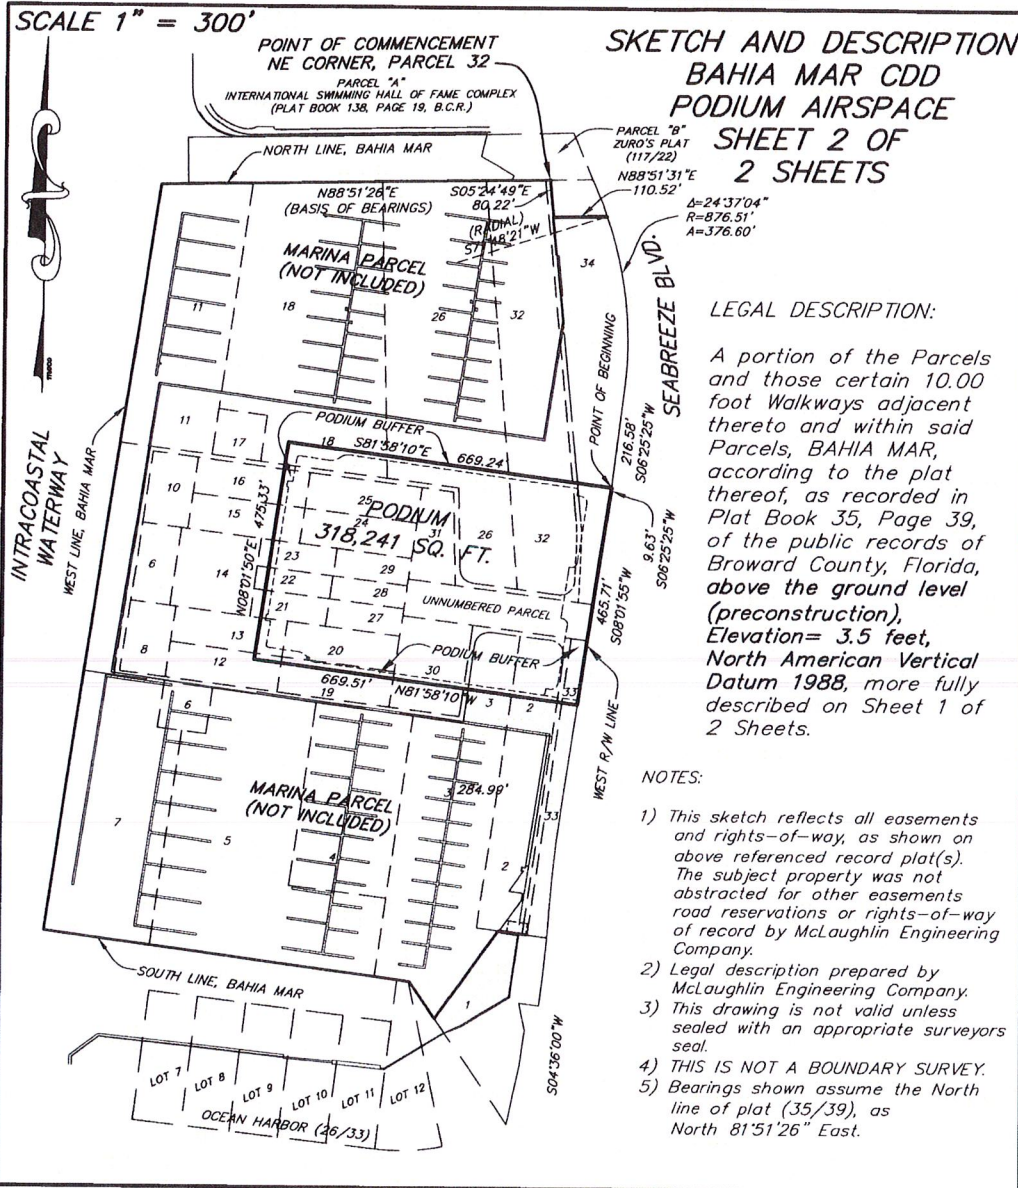 SCALE 1" = 300'
POINT OF COMMENCEMENT
NE CORNER, PARCEL 32
PARCEL "A"
INTERNATIONAL SWIMMING HALL OF FAME COMPLEX
(PLAT BOOK 138, PAGE 19, B.C.R.)
SKETCH AND DESCRIPTION
BAHIA MAR CDD
PODIUM AIRSPACE
SHEET 2 OF
2 SHEETS
PARCEL "B"
ZURO'S PLAT
(117/22)
N88°51'31"E
110.52'
Δ=24°37'04"
R=876.51'
A=376.60'
NORTH LINE, BAHIA MAR
N88°51'26"E
(BASIS OF BEARINGS)
S05°24'49"E
80.22'
(RADIAL)
48'21"W
MARINA PARCEL
(NOT INCLUDED)
34
11
18
26
32
SEABREEZE BLVD.
POINT OF BEGINNING
216.58'
S06°25'25"W
INTRACOASTAL
WATERWAY
WEST LINE, BAHIA MAR
PODIUM BUFFER
11
17
18
S81°58'10"E
669.24'
10
16
15
475.33'
N08°01'50"E
25
24
PODIUM
318,241 SQ. FT.
31
26
32
9.63'
S06°25'25"W
6
14
23
22
21
29
28
27
UNNUMBERED PARCEL
465.71'
S08°01'55"W
13
12
8
20
PODIUM BUFFER
30
669.51'
N81°58'10"W
19
3
2
33
WEST R/W LINE
6
MARINA PARCEL
(NOT INCLUDED)
3
284.99'
33
7
5
4
2
1
SOUTH LINE, BAHIA MAR
S04°36'00"W
LOT 7
LOT 8
LOT 9
LOT 10
LOT 11
LOT 12
OCEAN HARBOR (26/33)
LEGAL DESCRIPTION:
A portion of the Parcels
and those certain 10.00
foot Walkways adjacent
thereto and within said
Parcels, BAHIA MAR,
according to the plat
thereof, as recorded in
Plat Book 35, Page 39,
of the public records of
Broward County, Florida,
above the ground level
(preconstruction),
Elevation= 3.5 feet,
North American Vertical
Datum 1988, more fully
described on Sheet 1 of
2 Sheets.
NOTES:
1) This sketch reflects all easements
and rights-of-way, as shown on
above referenced record plat(s).
The subject property was not
abstracted for other easements
road reservations or rights-of-way
of record by McLaughlin Engineering
Company.
2) Legal description prepared by
McLaughlin Engineering Company.
3) This drawing is not valid unless
sealed with an appropriate surveyors
seal.
4) THIS IS NOT A BOUNDARY SURVEY.
5) Bearings shown assume the North
line of plat (35/39), as
North 81°51'26" East.